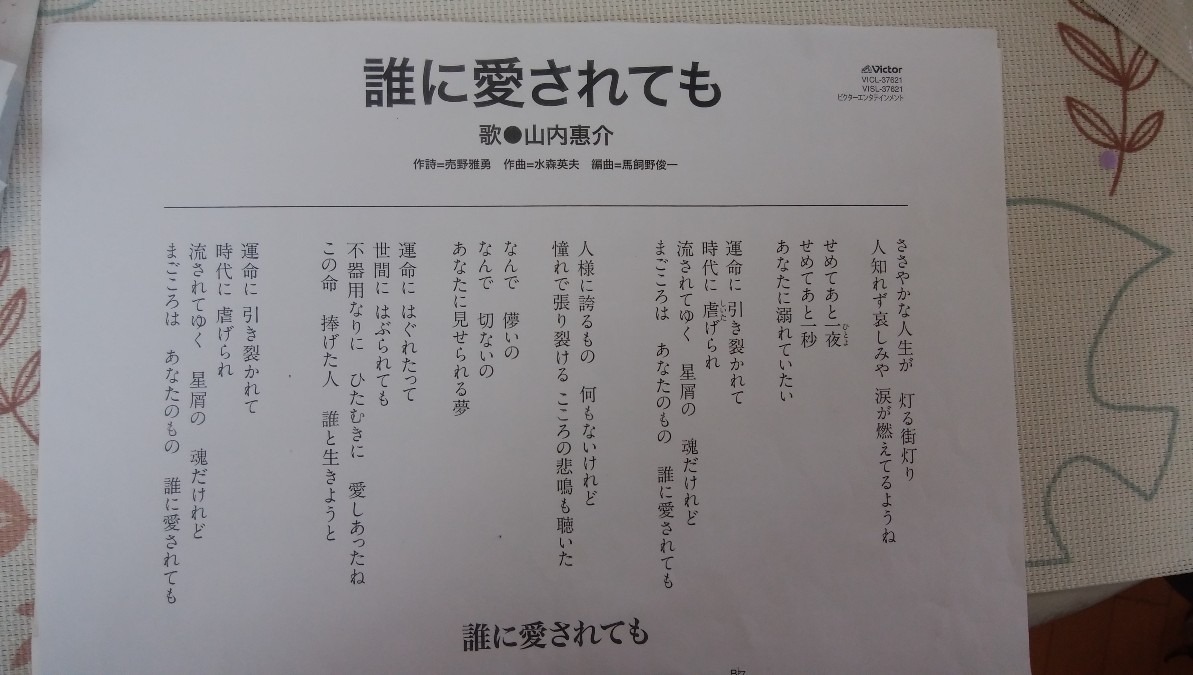 誰に愛されても
歌●山内惠介
作詩=売野雅勇 作曲=水森英夫 編曲=馬飼野俊一
Victor
VICL-37621
VISL-37621
ビクターエンタテインメント
ささやかな人生が 灯る街灯り
人知れず哀しみや 涙が燃えてるようね
せめてあと一夜
ひとよ
せめてあと一秒
あなたに溺れていたい
運命に 引き裂かれて
時代に 虐げられ
しいた
流されてゆく 星屑の 魂だけれど
まごころは あなたのもの 誰に愛されても
人様に誇るもの 何もないけれど
憧れで張り裂ける こころの悲鳴も聴いた
なんで 儚いの
なんで 切ないの
あなたに見せられる夢
運命に はぐれたって
世間に はぶられても
不器用なりに ひたむきに 愛しあったね
この命 捧げた人 誰と生きようと
運命に 引き裂かれて
時代に 虐げられ
流されてゆく 星屑の 魂だけれど
まごころは あなたのもの 誰に愛されても
誰に愛されても